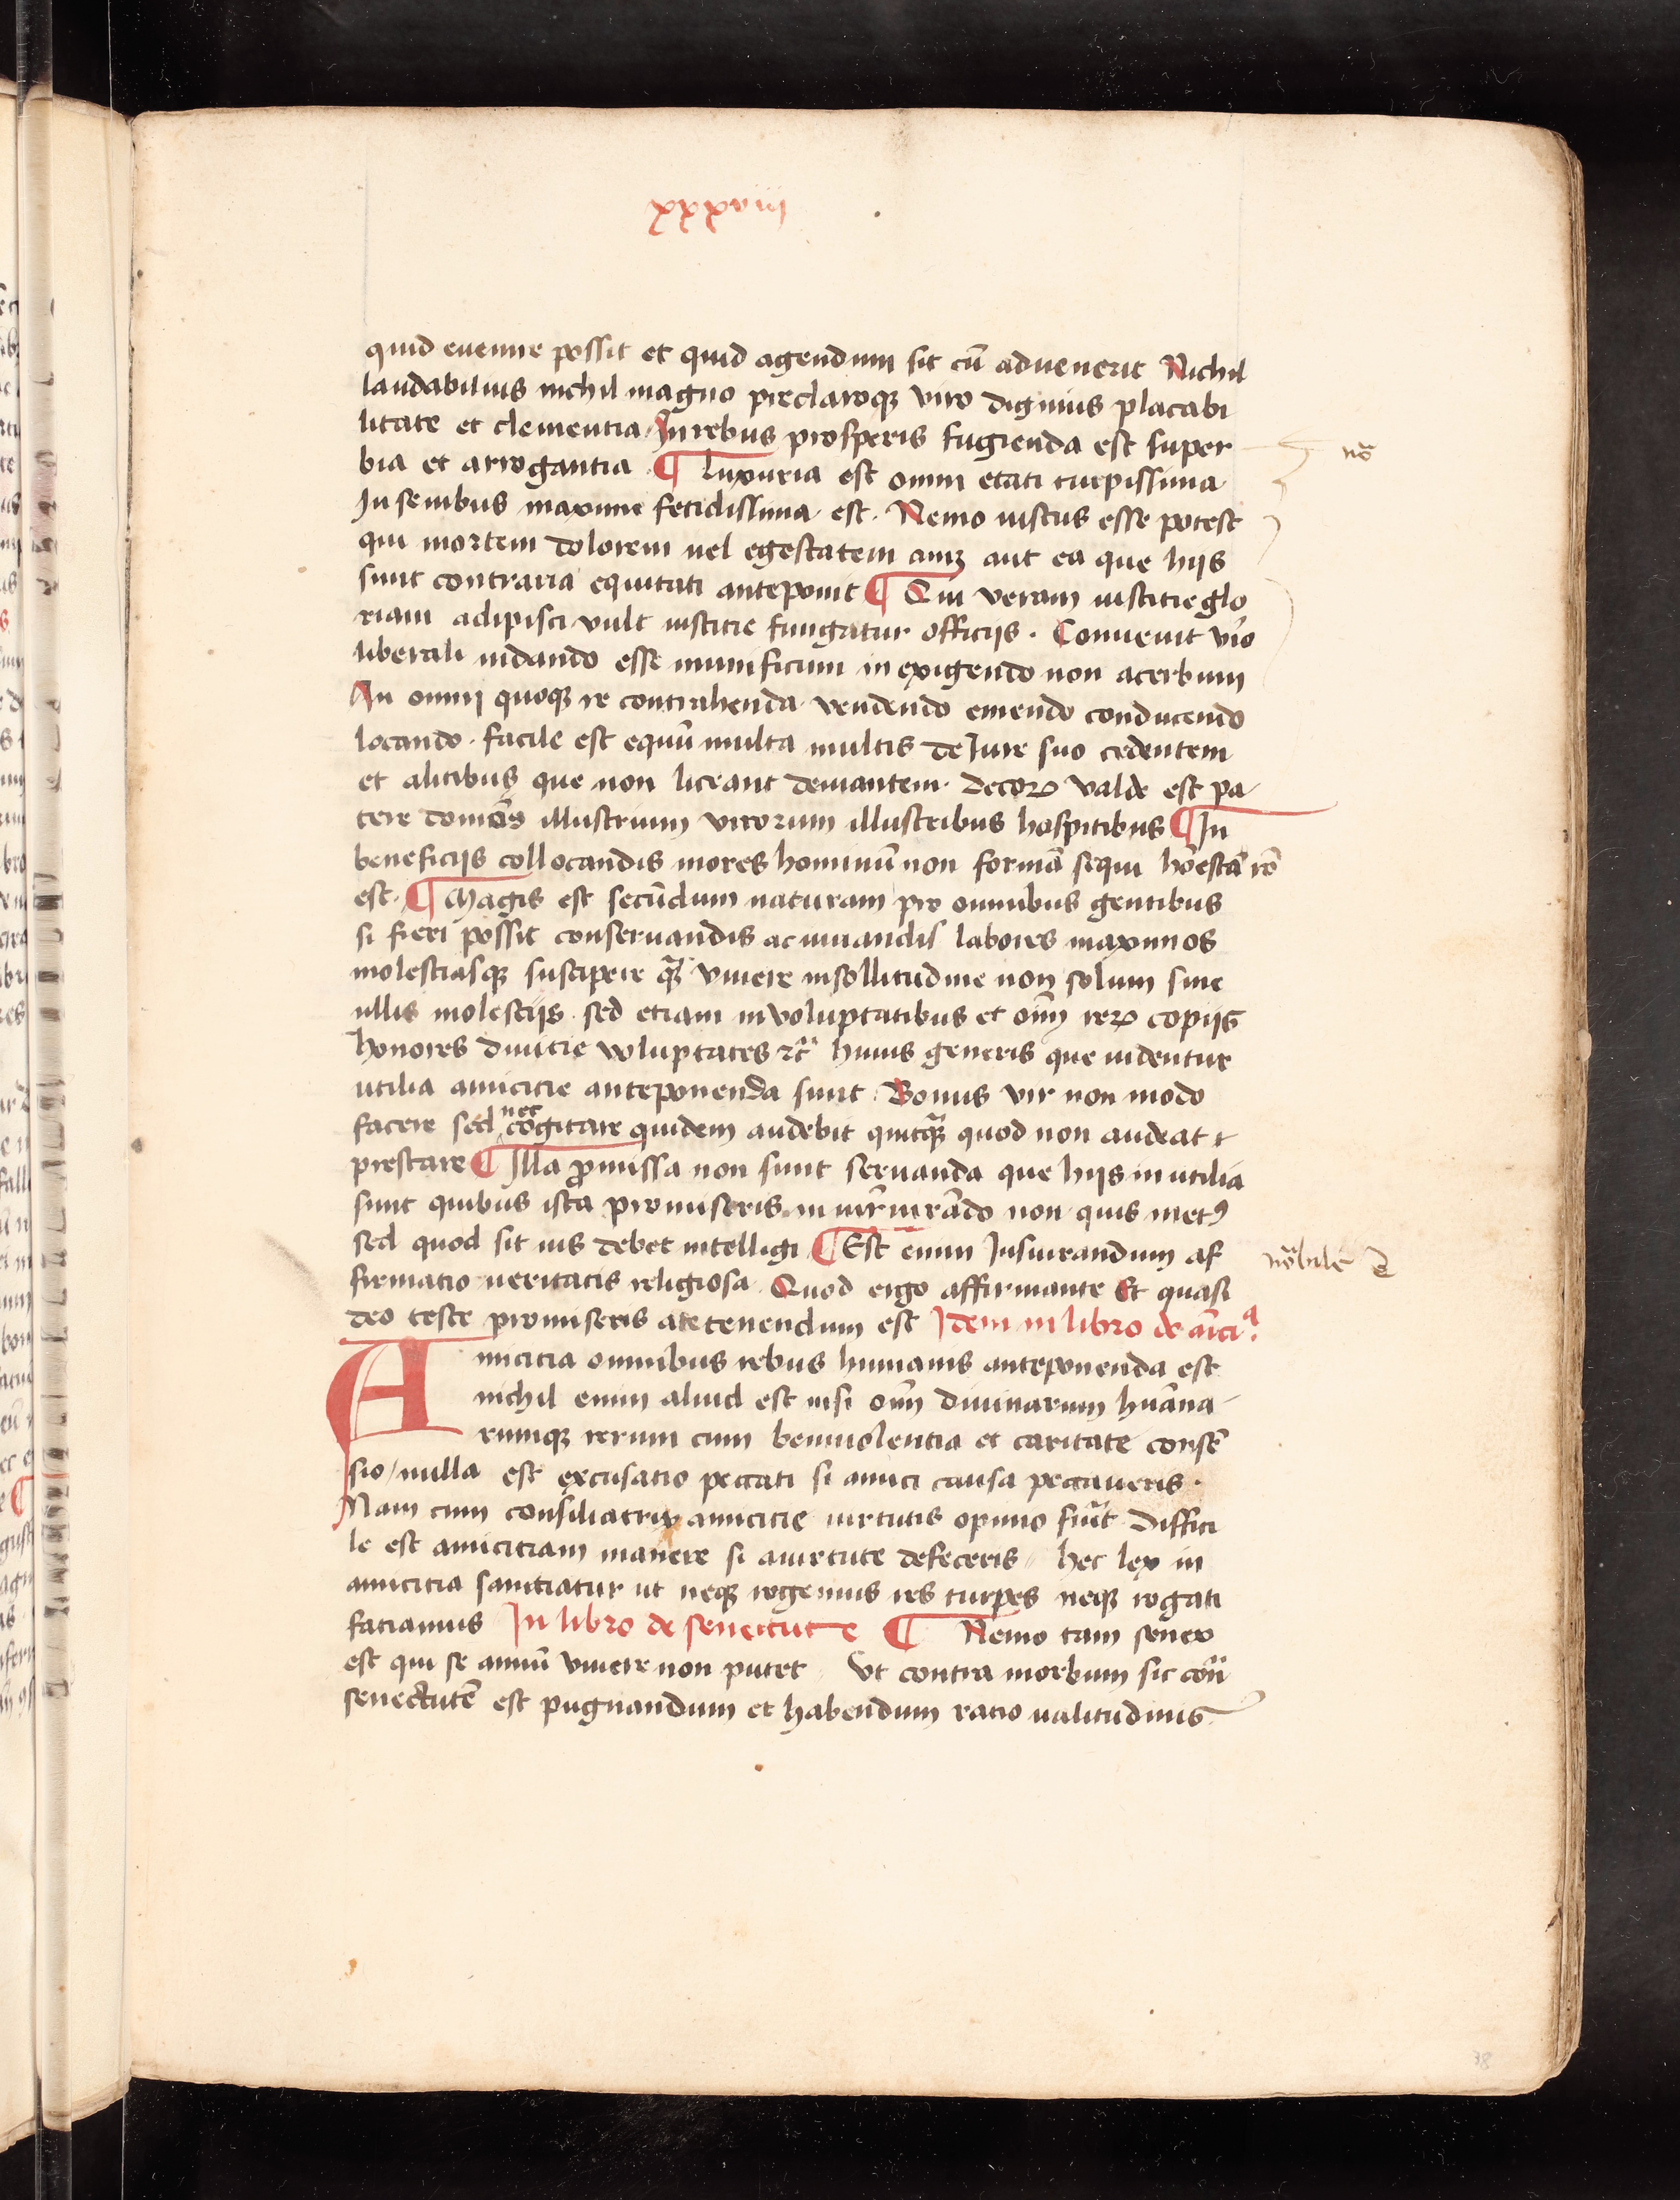 xxxviij
quid euenire possit et quid agendum sit cū aduenerit Nichil
laudabilius nichil magno preclaroqꝫ viro dignius placabi
litate et clementia In rebus prosperis fugienda est super
bia et arrogantia ¶ luxuria est omni etati turpissima
In senibus maxime fetidissima est. Nemo iustus esse potest
qui mortem dolorem uel egestatem aut ea que hijs
sunt contraria equitati anteponit ¶ Qui veram iusticie glo
riam adipisci vult iusticie fungatur officijs . Conuenit viro
liberali in dando esse munificum in exigendo non acerbum
In omni quoqꝫ re contrahenda vendendo emendo conducendo
locando . facile est equū multa multis de Iure suo cedentem
et a litibus que non liceant deuiantem . decoꝝ valde est pa
tere domos illustrium virorum illustribus hospitibus ¶ In
beneficijs collocandis mores hominū non formā sequi
est . ¶ Magis est secundum naturam pro omnibus gentibus
si fieri possit conseruandis ac iuuandis labores maximos
molestiasqꝫ suscipere qȝ viuere in sollitudine non solum sine
ullis molestijs . sed etiam in voluptatibus et oīm reꝝ copijs
honores diuitie voluptates ꝛc̄ huius generis que uidentur
utilia amicitie anteponenda sunt . Bonus vir non modo
facere sed nec cogitare quidem audebit quitqȝ quod non audeat
prestare ¶ Illa promissa non sunt seruanda que hijs inutilia
sunt quibus ista promiseris . in iureiurādo non quis metꝰ
sed quod sit ius debet intelligi ¶ Est enim Iusiurandum af
firmatio ueritatis religiosa . Quod ergo affirmante Et quasi
deo teste promiseris tenendum est Idem in libro de amīciᵃ.
Amicitia omnibus rebus humanis anteponenda est
nichil enim aliud est nisi oīm diuinarum humāna
rumqꝫ rerum cum beniuolentia et caritate consē
sio / nulla est excusatio peccati si amici causa peccaueris .
Nam cum consiliatrix amicitie uirtutis opinio fuīt Diffici
le est amicitiam manere si a uirtute defeceris hec lex in
amicitia sanctiatur ut neqꝫ rogemus res turpes neqꝫ rogati
faciamus In libro de senectute ¶ Nemo tam senex
est qui se annū viuere non putet Vt contra morbum sic
senectutē est pugnandum et habendum ratio ualitudinis
nō
38